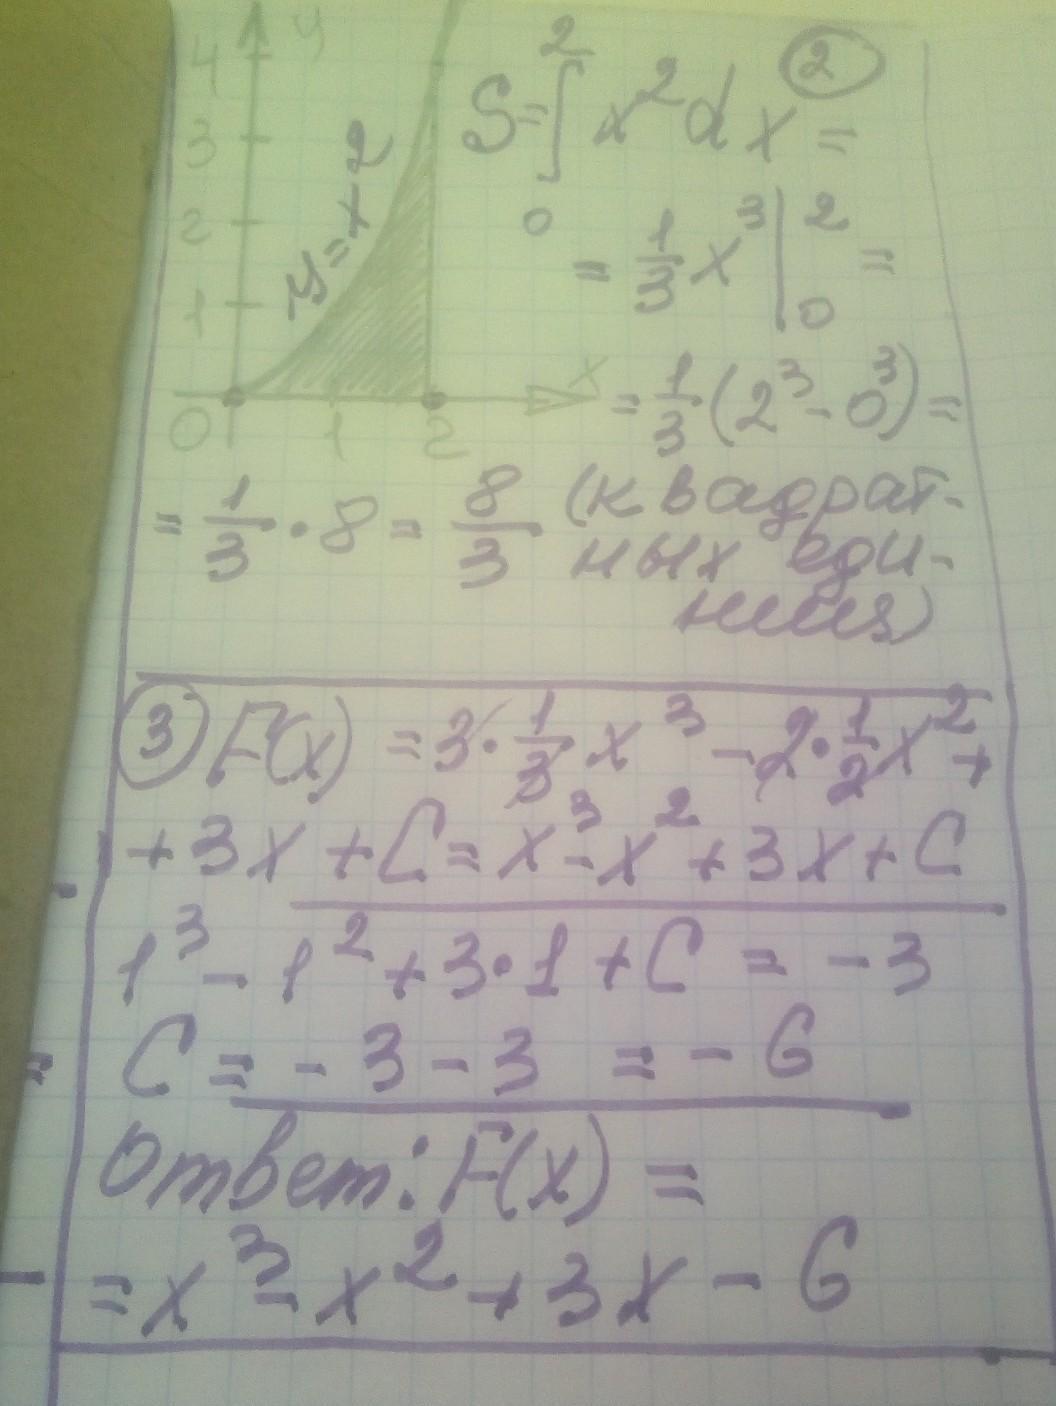 y
4
3
2
1
0
1
2
x
y=x2
②
S=∫₀² x²dx =
= 1/3 x³ |₀² =
= 1/3 (2³ - 0³) =
= 1/3 · 8 = 8/3 (квадрат-
ных еди-
ниц)
③ F(x) = 3 · 1/3 x³ - 2 · 1/2 x² +
+ 3x + C = x³ - x² + 3x + C
1³ - 1² + 3 · 1 + C = -3
C = -3 - 3 = -6
Ответ: F(x) =
= x³ - x² + 3x - 6